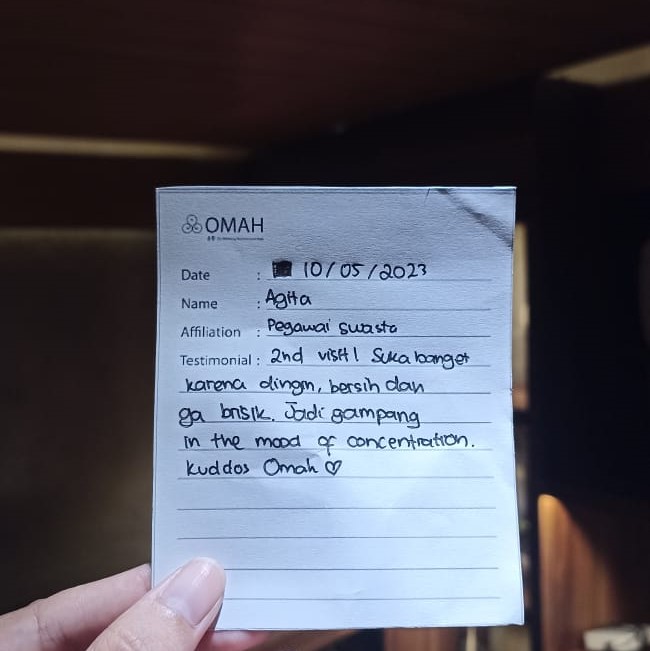 OMAH
Date : 10/05/2023
Name : Agita
Affiliation : Pegawai swasta
Testimonial : 2nd visit! Suka banget
karena dingin, bersih dan
ga brisik. Jadi gampang
in the mood of concentration.
kuddos Omah ♡